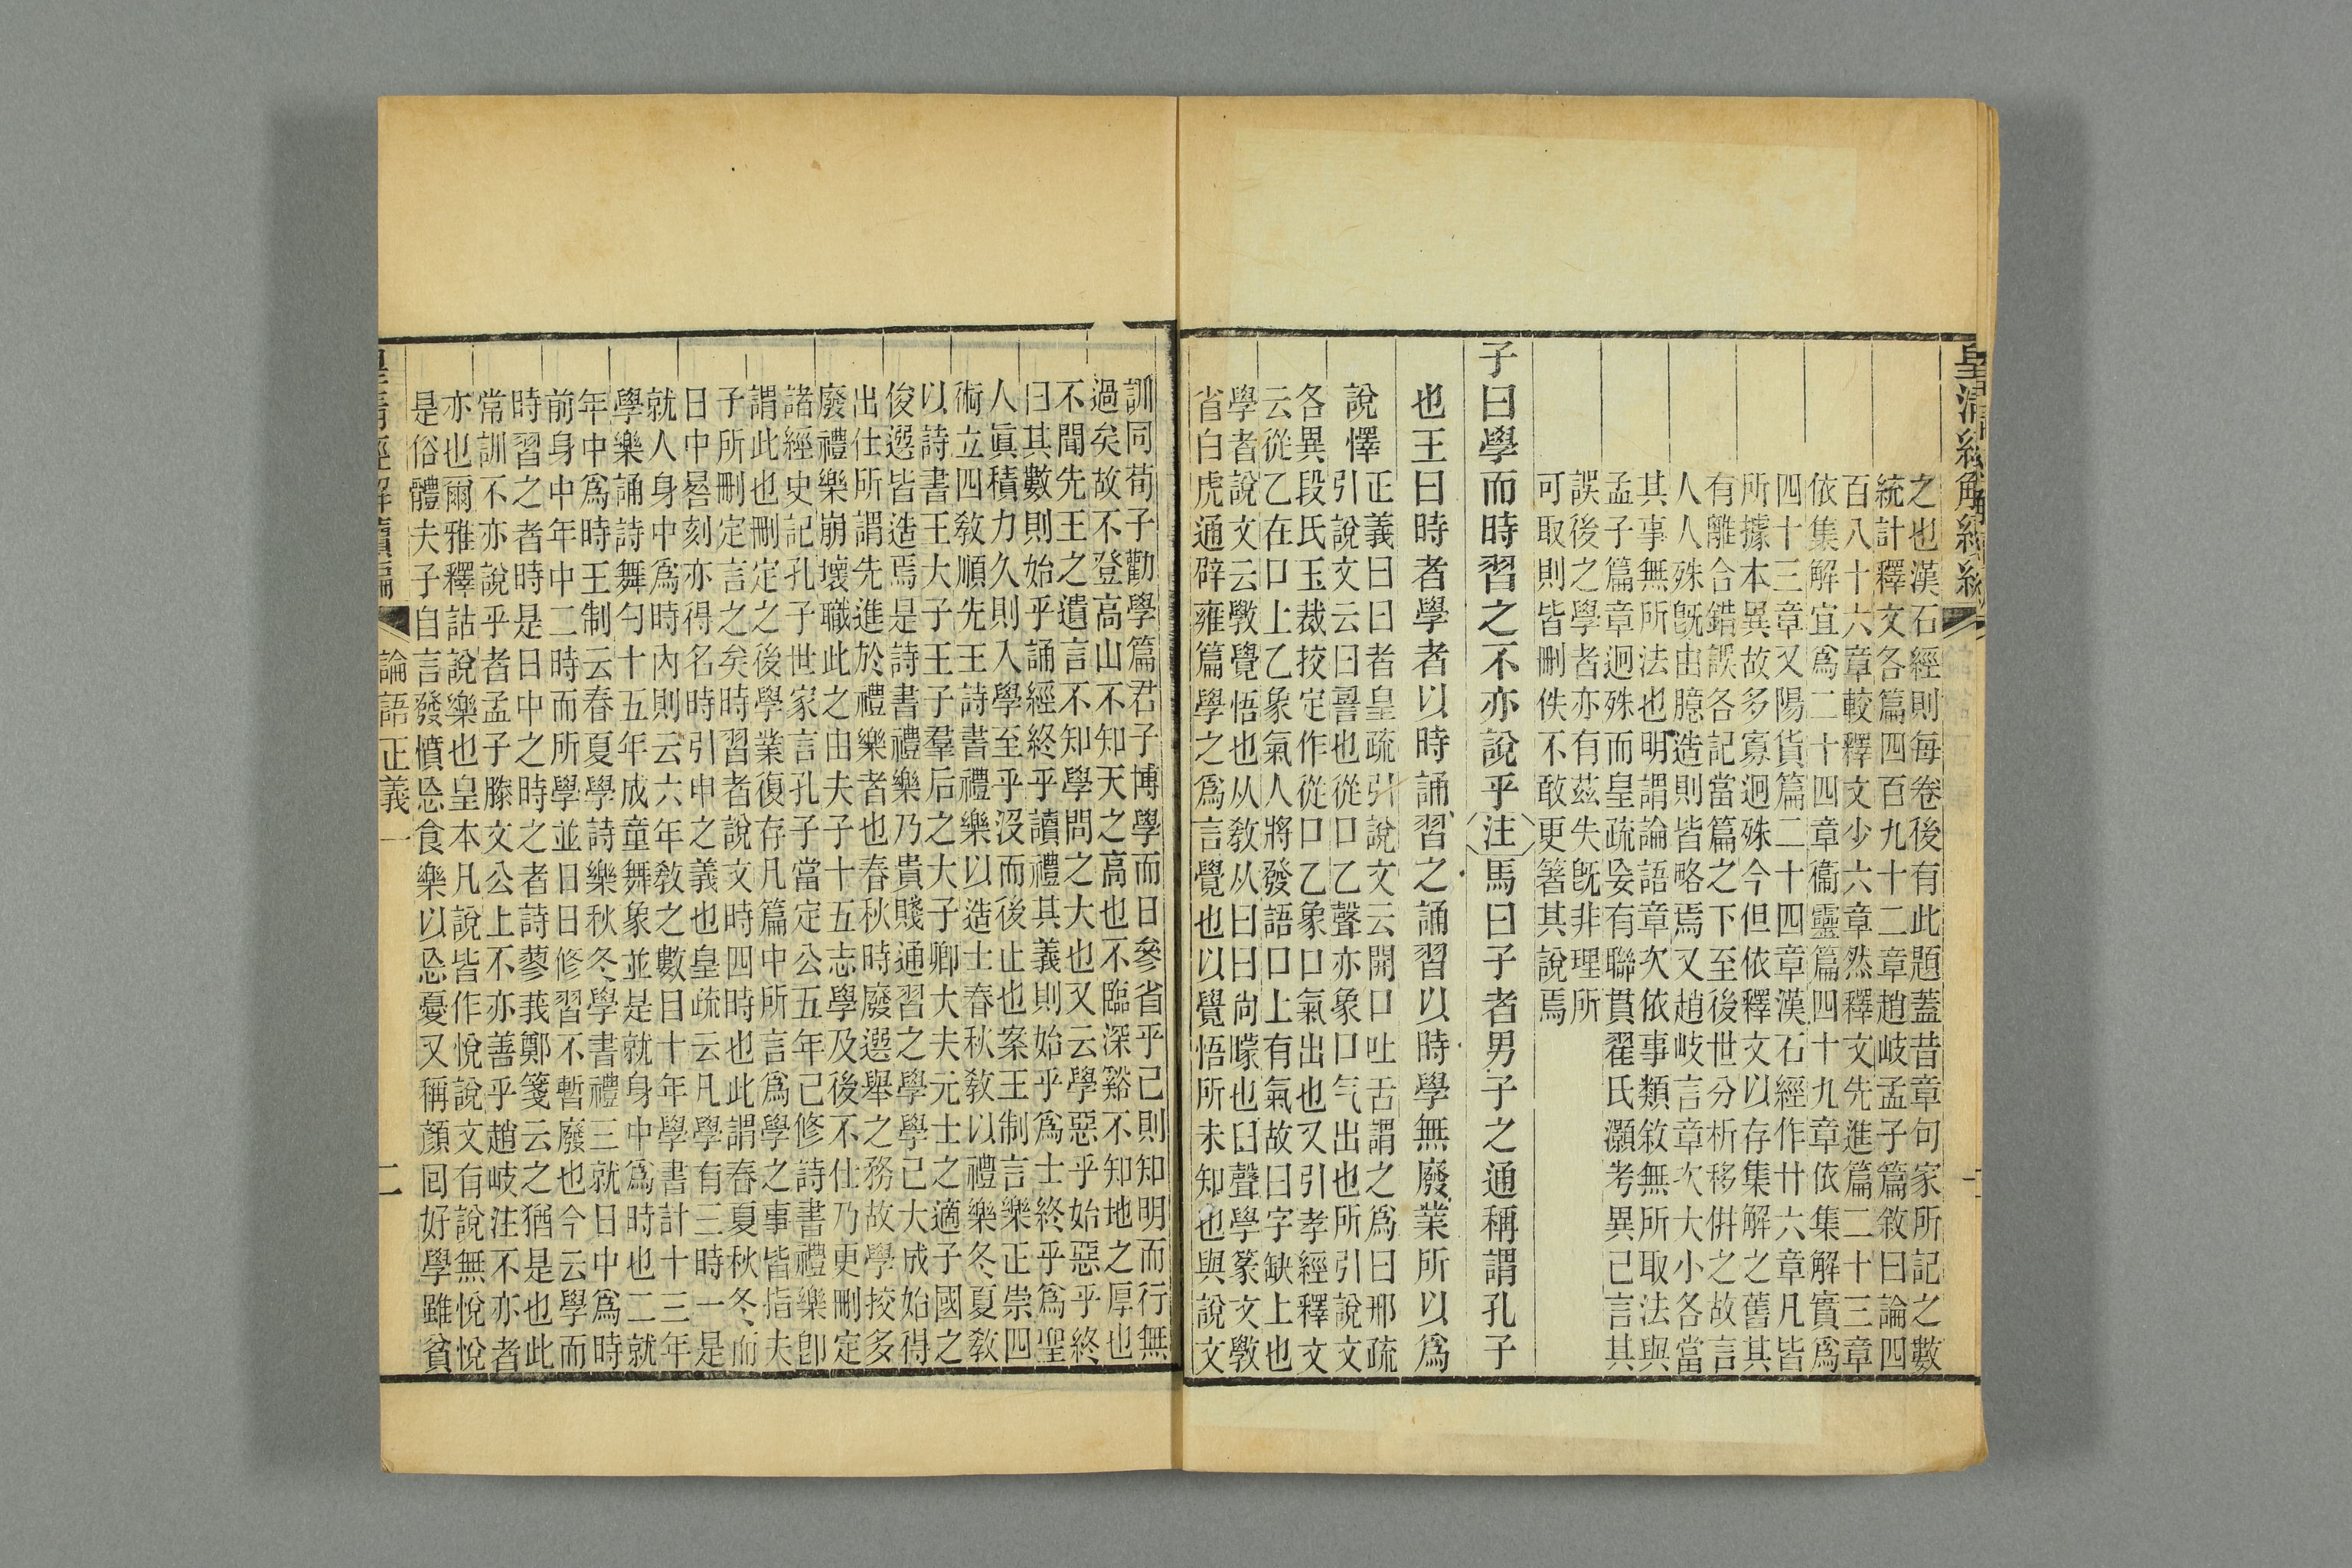 之也漢石經則每卷後有此題蓋昔章句家所記之數
統計釋文各篇四百九十二章趙岐孟子篇敘曰論四
百八十六章較釋文少六章然釋文先進篇二十三章
依集解宜爲二十四章衞靈篇四十九章依集解實爲
四十三章又陽貨篇二十四章漢石經作廿六章凡皆
所據本異故多寡迥殊今但依釋文以存集解之舊其
有離合錯誤各記當篇之下至後世分析移倂之故言
人人殊旣由臆造則皆略焉又趙岐言章次大小各當
其事無所法也明謂論語章次依事類敘無所取法與
孟子篇章迥殊而皇疏妄有聯貫翟氏灝考異已言其
誤後之學者亦有茲失旣非理所
可取則皆刪佚不敢更箸其說焉
子曰學而時習之不亦說乎注馬曰子者男子之通稱謂孔子
也王曰時者學者以時誦習之誦習以時學無廢業所以爲
說懌 正義曰曰者皇疏引說文云開口吐舌謂之爲曰邢疏
引說文云曰䛐也從口乙聲亦象口气出也所引說文
各異段氏玉裁挍定作從口乙象口氣出也又引孝經釋文
云從乙在口上乙象氣人將發語口上有氣故曰字缺上也
學者說文云斆覺悟也从敎从冂冂尚矇也臼聲學篆文斆
省白虎通辟雍篇學之爲言覺也以覺悟所未知也與說文
訓同荀子勸學篇君子博學而日參省乎己則知明而行無
過矣故不登高山不知天之高也不臨深谿不知地之厚也
不聞先王之遺言不知學問之大也又云學惡乎始惡乎終
曰其數則始乎誦經終乎讀禮其義則始乎爲士終乎爲聖
人眞積力久則入學至乎沒而後止也案王制言樂正崇四
術立四敎順先王詩書禮樂以造士春秋敎以禮樂冬夏敎
以詩書王大子王子羣后之大子卿大夫元士之適子國之
俊選皆造焉是詩書禮樂乃貴賤通習之學學已大成始得
出仕所謂先進於禮樂者也春秋時廢選舉之務故學挍多
廢禮樂崩壞職此之由夫子十五志學及後不仕乃更刪定
諸經史記孔子世家言孔子當定公五年已修詩書禮樂卽
謂此也刪定之後學業復存凡篇中所言爲學之事皆指夫
子所刪定言之矣時習者說文時四時也此謂春夏秋冬而
日中晷刻亦得名時引申之義也皇疏云凡學有三時一是
就人身中爲時內則云六年敎之數目十年學書計十三年
學樂誦詩舞勺十五年成童舞象並是就身中爲時也二就
年中爲時王制云春夏學詩樂秋冬學書禮三就日中爲時
前身中年中二時而所學並日日修習不暫廢也今云學而
時習之者時是日中之時之者詩蓼莪鄭箋云之猶是也此
常訓不亦說乎者孟子滕文公上不亦善乎趙岐注不亦者
亦也爾雅釋詁說樂也皇本凡說皆作悅說文有說無悅悅
是俗體夫子自言發憤忘食樂以忘憂又稱顏回好學雖貧
皇清經解續編 論語正義一 二